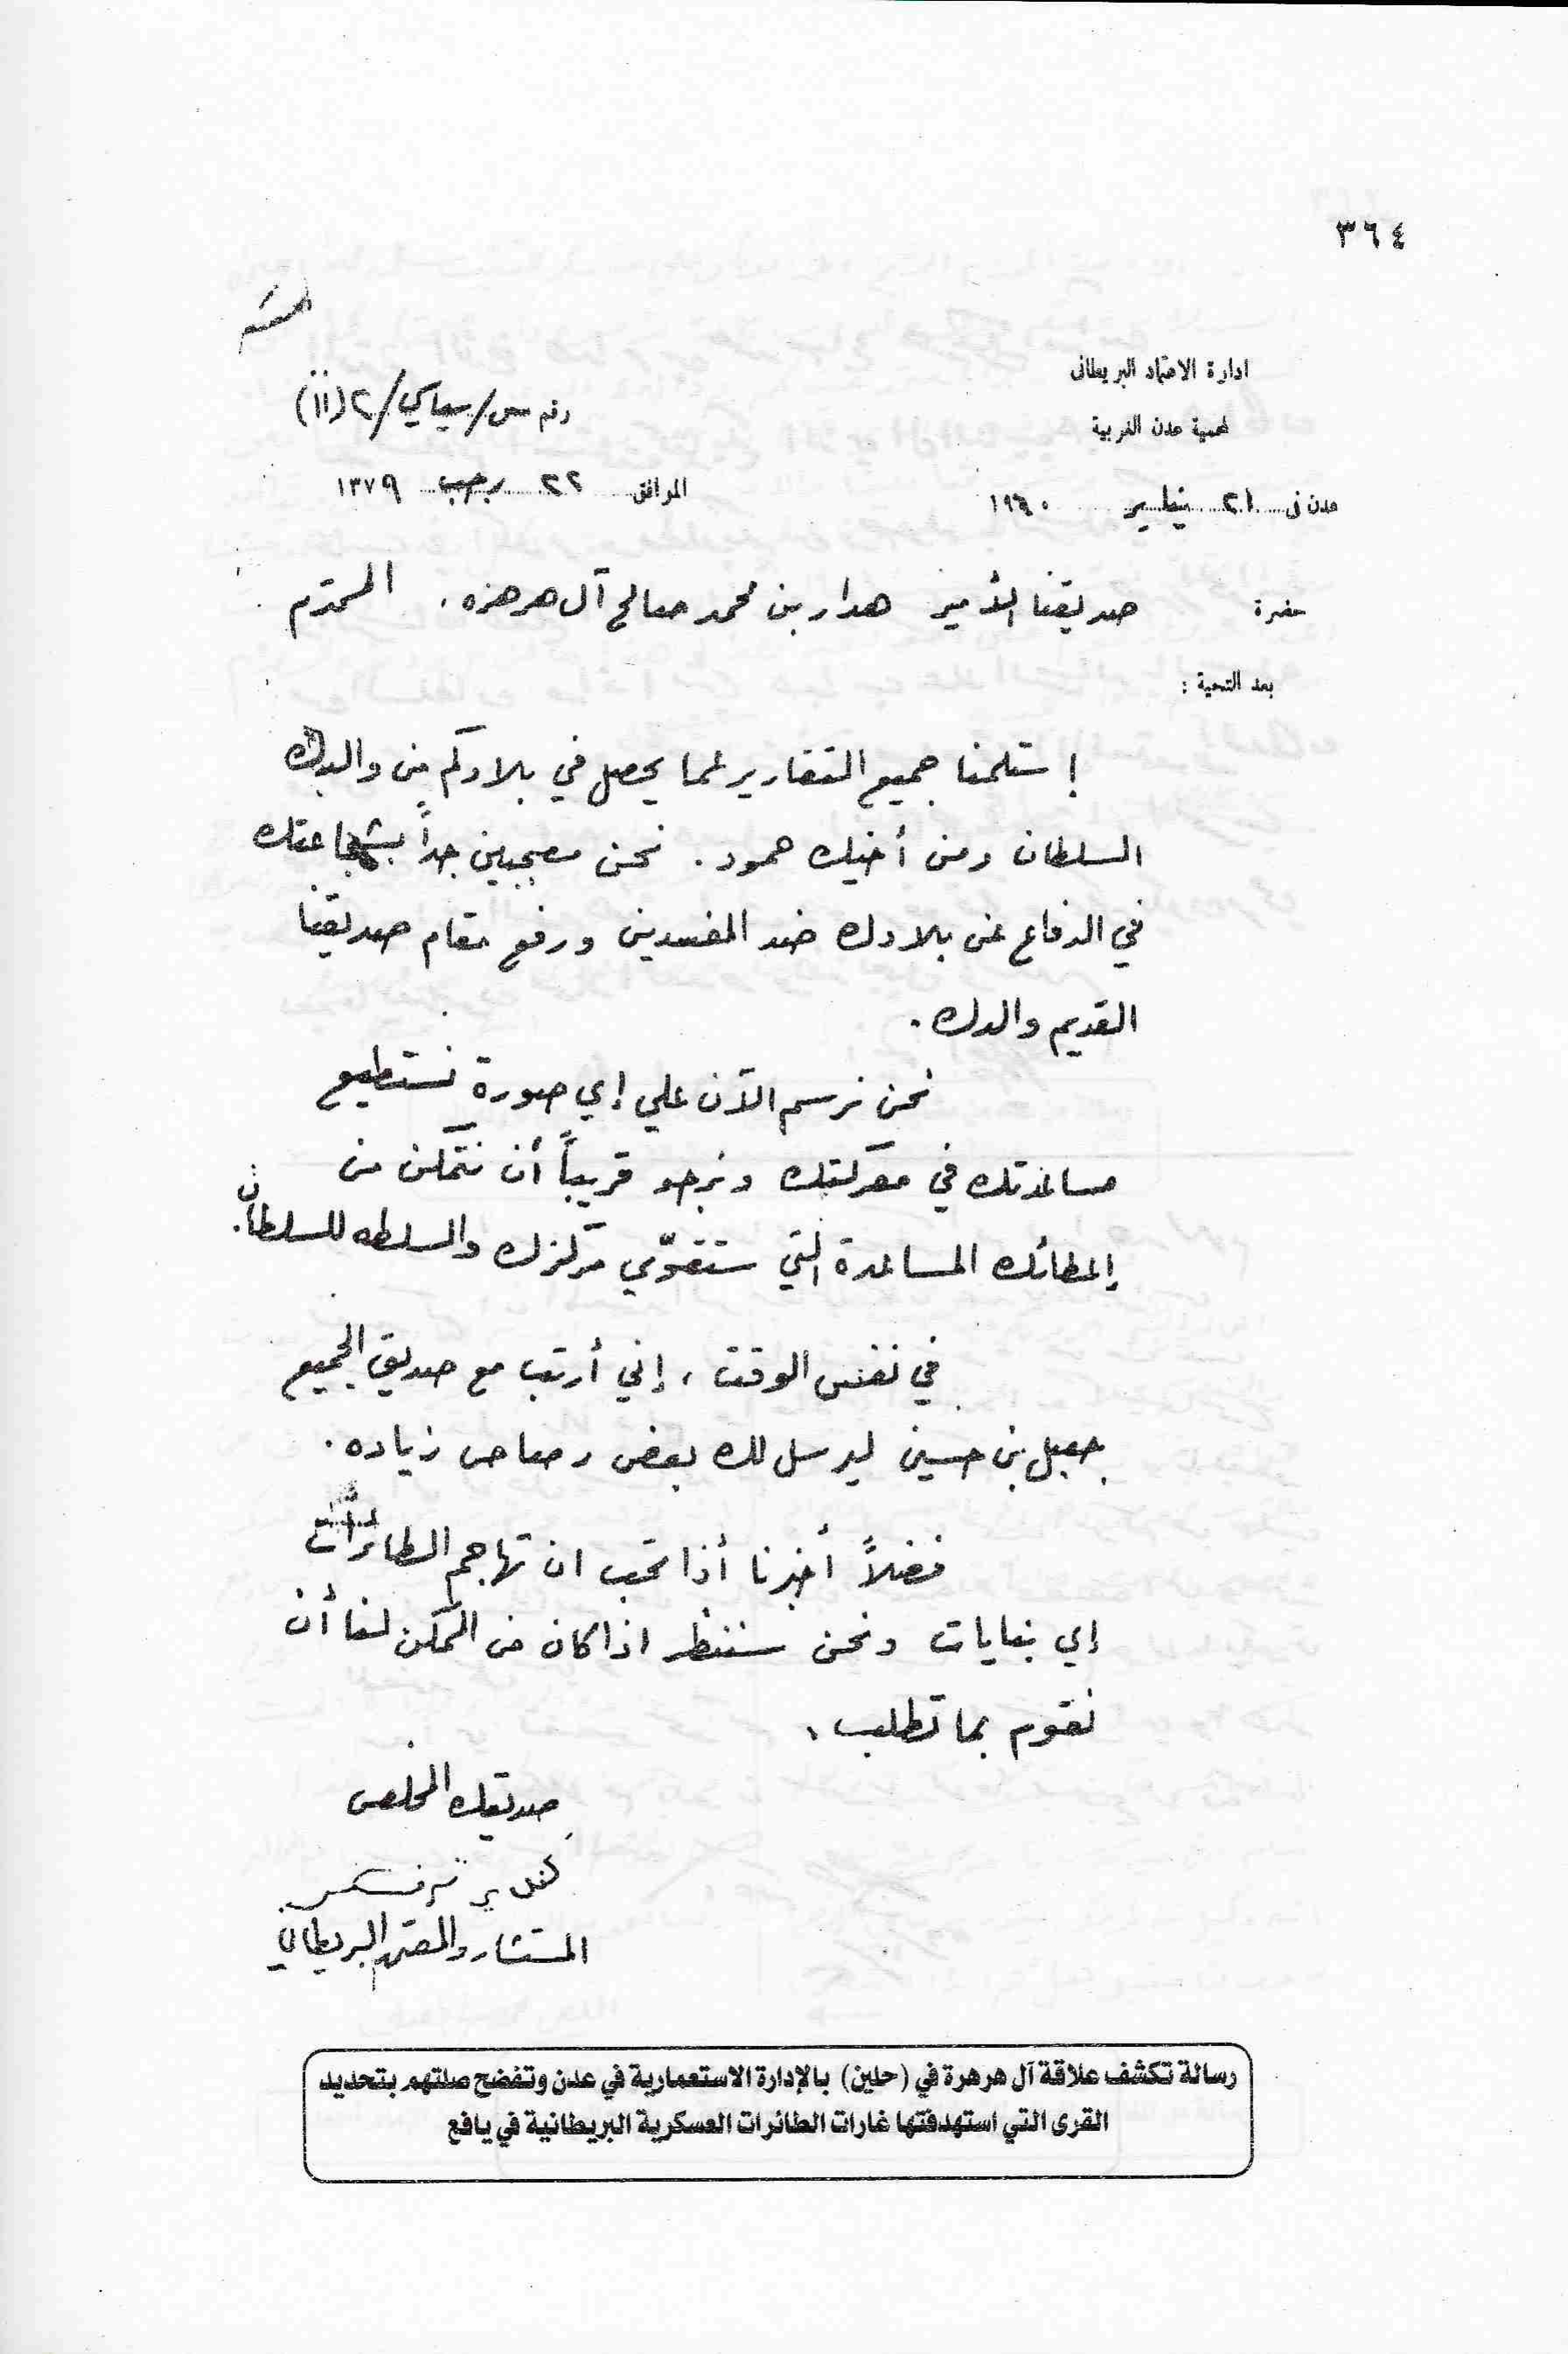 ٣٦٤
ادارة الاعتماد البريطانى
لمحمية عدن الغربية
رقم س/سياسي/٢(١١)
عدن فى ٢١ يناير ١٩٦٠
الموافق ٢٢ رجب ١٣٧٩
حضرة صديقنا الأمير هدار بن محمد صالح آل هرهره، المحترم
بعد التحية :
إستلمنا جميع التقارير لما يحصل في بلادكم من والدك
السلطان ومن أخيك حمود. نحن معجبين جداً بشجاعتك
في الدفاع عن بلادك ضد المفسدين ورفع مقام صديقنا
القديم والدك.
نحن نرسم الآن علي إي صورة نستطيع
مساعدتك في معركتك ونرجو قريباً أن نتمكن من
إعطائك المساعدة التي ستقوّي مركزك والسلطه للسلطان.
في نفس الوقت، إني أرتب مع صديق الجميع
جعبل بن حسين ليرسل لك بعض رصاص زياده.
فضلاً أخبرنا أذا تحب ان تهاجم الطائرات
إي بنايات ونحن سننظر اذا كان من الممكن لنا أن
نقوم بما تطلب،
صديقك المخلص
المستشار والمعتمد البريطاني
رسالة تكشف علاقة آل هرهرة في (حلين) بالإدارة الاستعمارية في عدن وتفضح صلتهم بتحديد
القرى التي استهدفتها غارات الطائرات العسكرية البريطانية في يافع